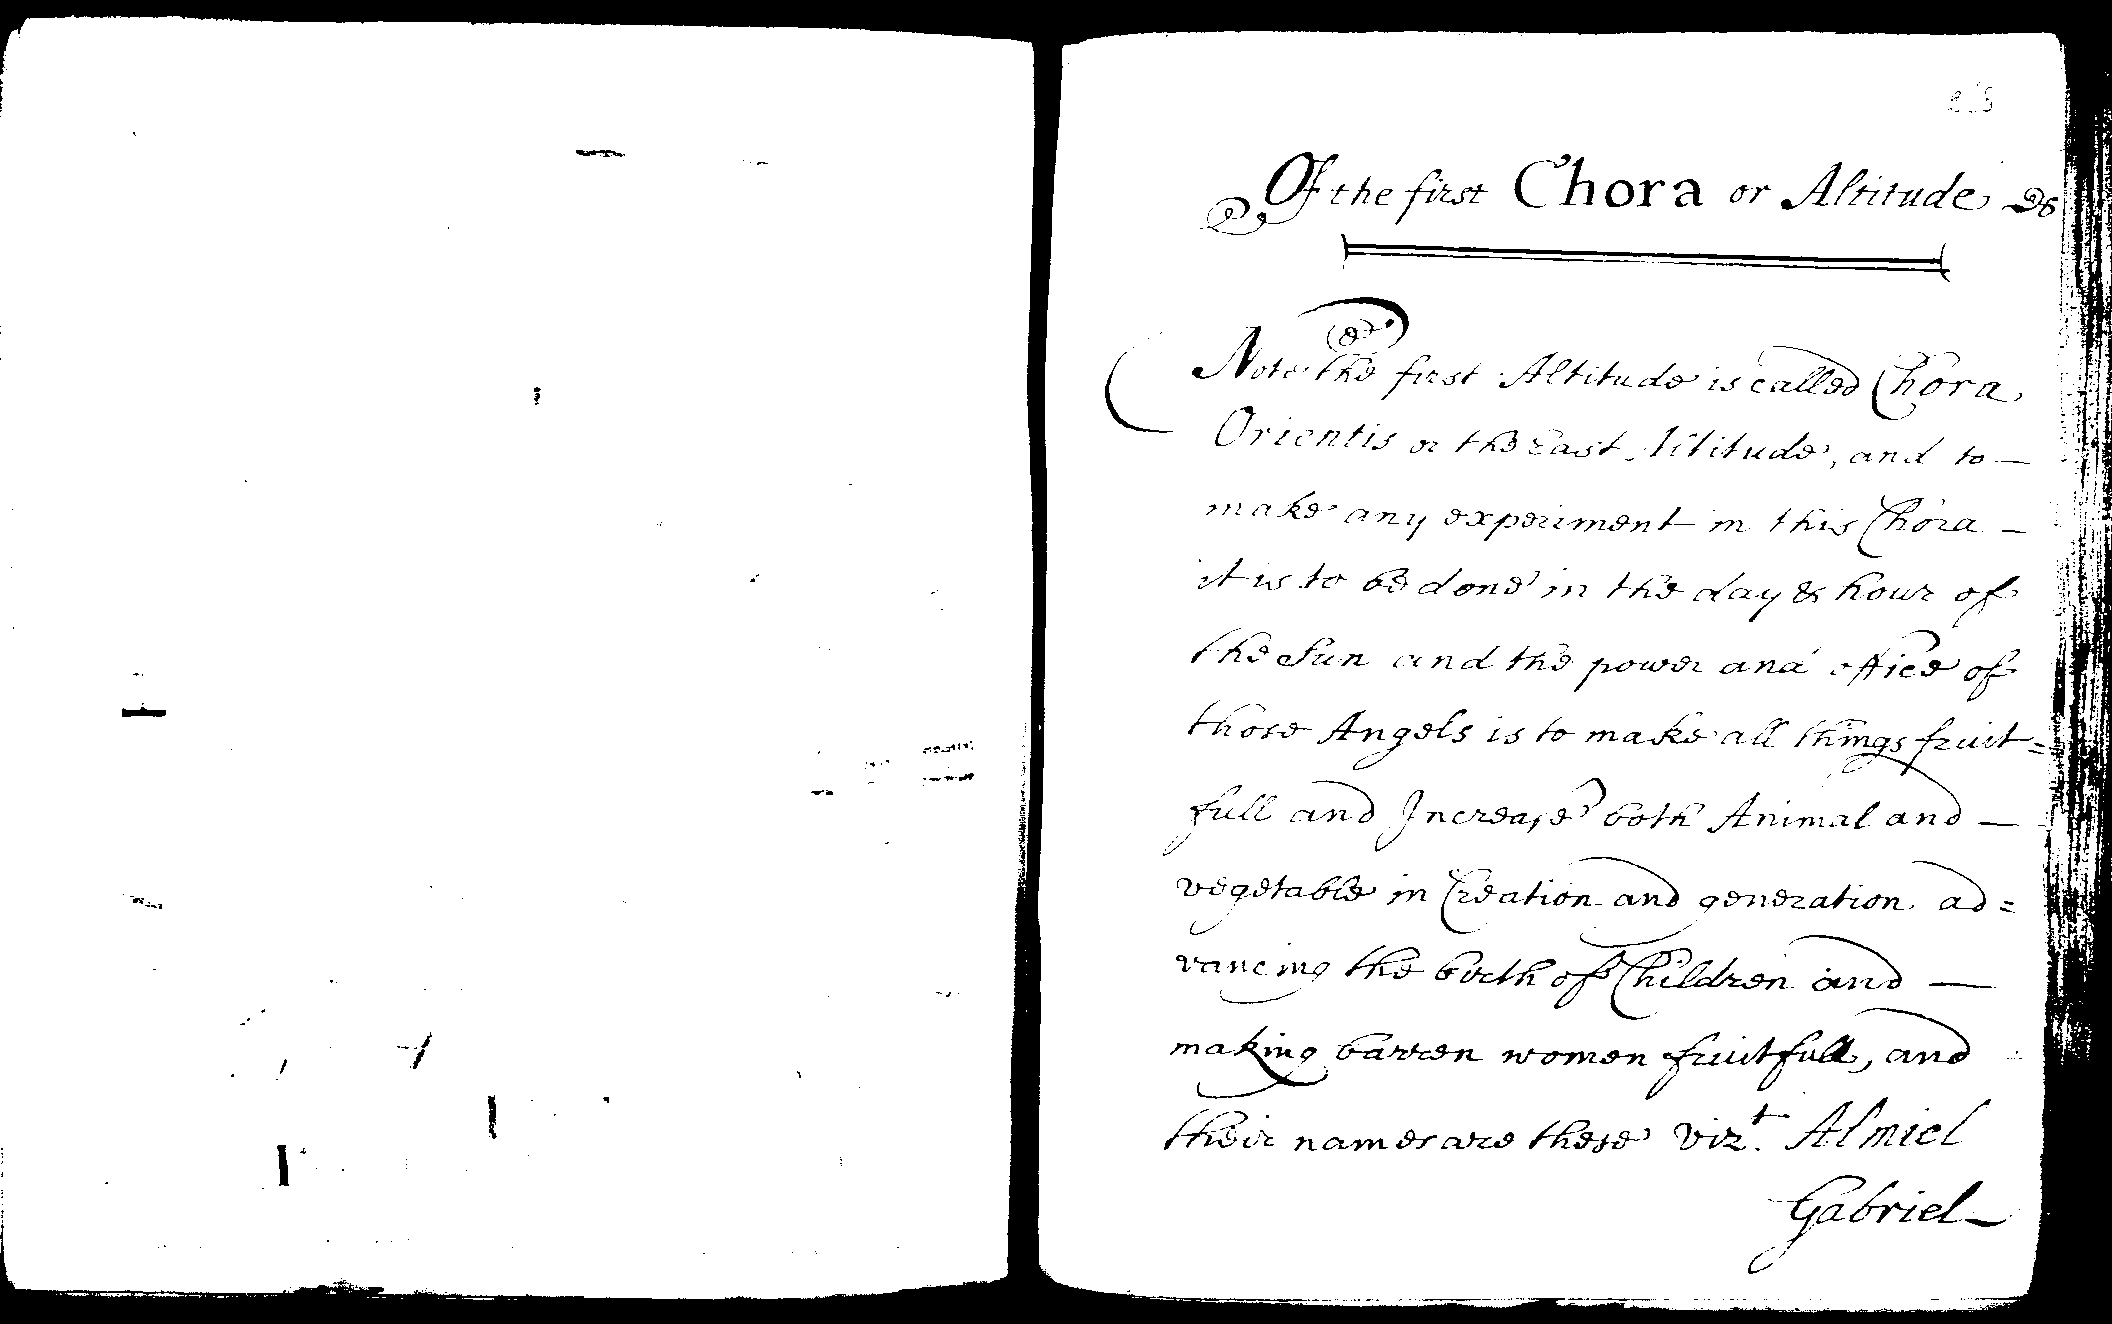 Of the first Chora or Altitude
Note the first Altitude is called Chora
Orientis or the East Altitude, and to —
make any experiment in this Chora —
it is to be done in the day & hour of
the Sun and the power and office of
those Angels is to make all things fruit=
full and Increase both Animal and —
vegetable in Creation and generation ad=
vancing the birth of Children and —
making barren women fruitfull, and
their names are these vizt. Almiel
Gabriel —